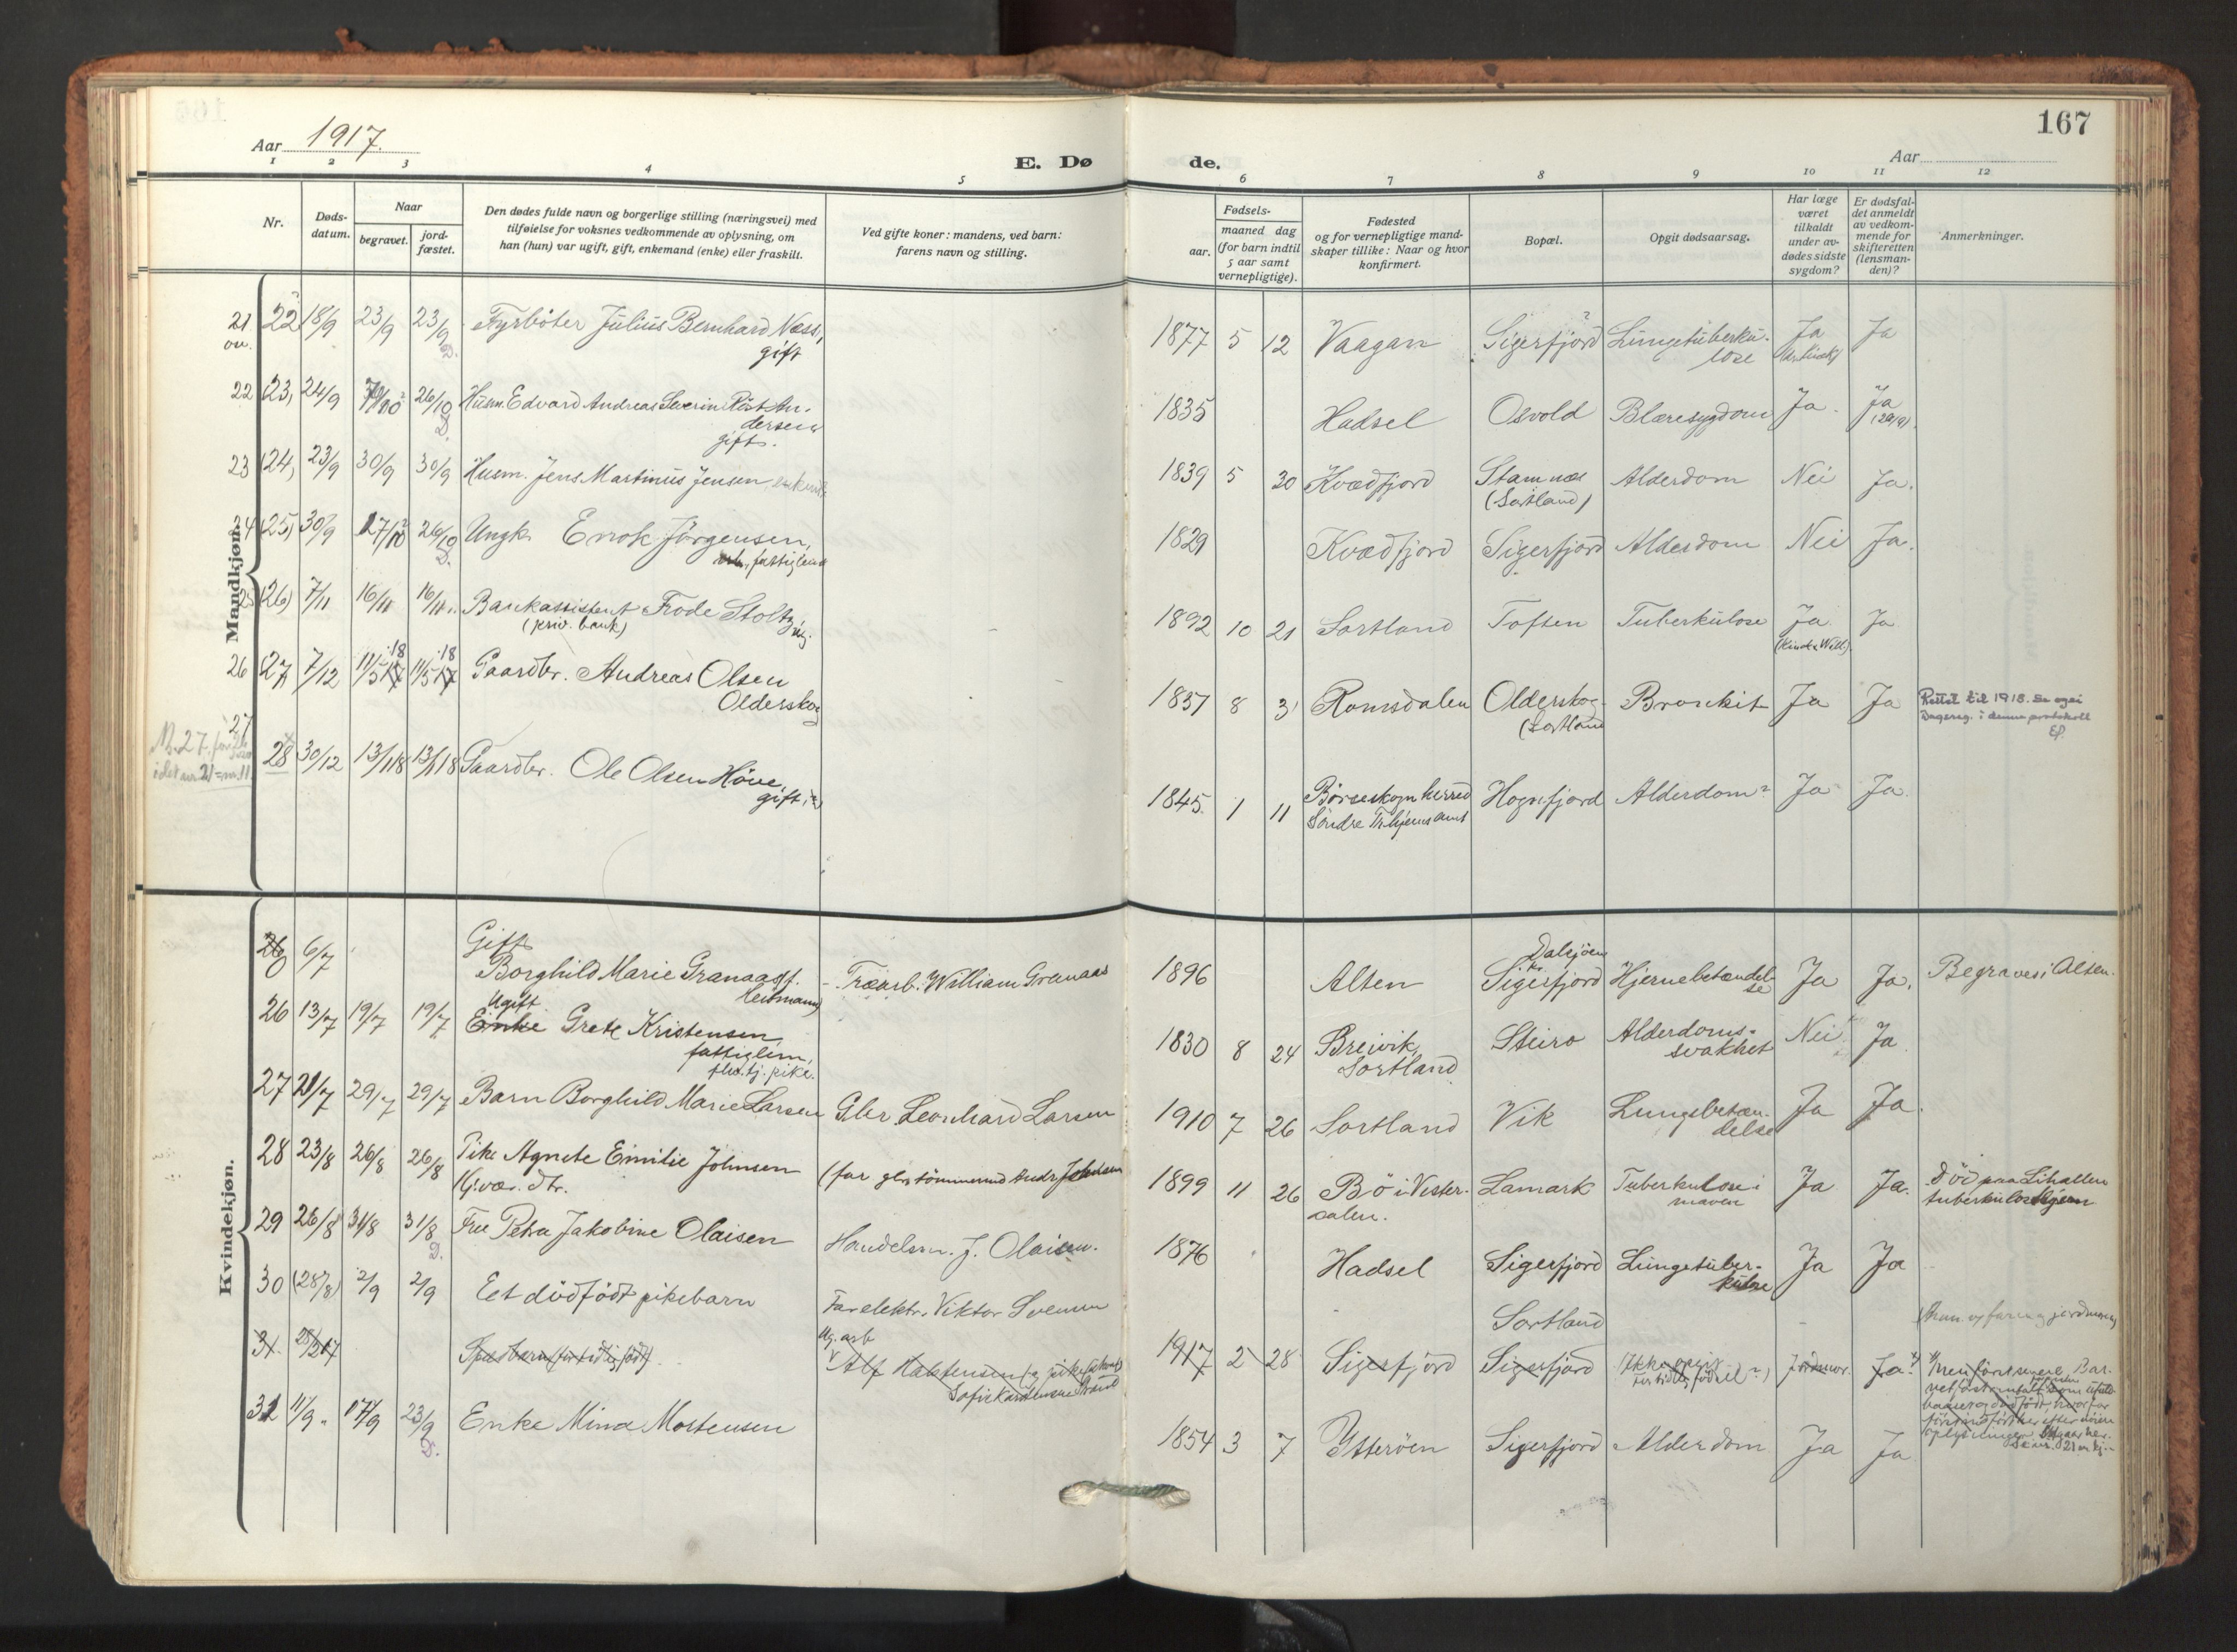 Aar 1917.
E. Døde.
167
Aar
1 2 3 4 5 6 7 8 9 10 11 12
Nr.
Døds-
datum.
Naar
begravet.
jord-
fæstet.
Den dødes fulde navn og borgerlige stilling (næringsvei) med
tilføielse for voksnes vedkommende av oplysning, om
han (hun) var ugift, gift, enkemand (enke) eller fraskilt.
Ved gifte koner: mandens, ved barn:
farens navn og stilling.
Fødsels-
aar.
maaned dag
(for barn indtil
5 aar samt
vernepligtige).
Fødested
og for vernepligtige mand-
skaper tillike: Naar og hvor
konfirmert.
Bopæl.
Opgit dødsaarsag.
Har læge
været
tilkaldt
under av-
dødes sidste
sygdom?
Er dødsfal-
det anmeldt
av vedkom-
mende for
skifteretten
(lensman-
den)?
Anmerkninger.
Mandkjøn.
21 22 18/9 23/9 23/9 Fyrbøter Julius Bernhard Næss, 1877 5 12 Vaagan Sigerfjord Lungetuberku- Ja Ja
gift lose
22 (23) 24/9 26/10 Husm. Edvard Andreas Severin Röst An- 1835 Hadsel Osvold Blæresygdom Ja. Ja
dersen
gift.
23 (24) 23/9 30/9 30/9 Husm. Jens Martinus Jensen 1839 5 30 Kvædfjord Stamnæs Alderdom Nei Ja.
(Sortland)
24 (25) 30/9 17/10 26/10 Ungk. Enok Jørgensen, 1829 Kvædfjord Sigerfjord Alderdom Nei Ja.
fattiglem
25 (26) 7/11 16/11 16/11 Bankassistent Frode Stoltz 1892 10 21 Sortland Toften Tuberkulose Ja Ja
(priv. bank) ug.
26 27 7/12 11/5 18 11/5 18 Gaardbr. Andreas Olsen 1837 8 31 Romsdalen Olderskog Bronkit Ja Ja Rettet til 1918. Se ogsaa
Olderskog (Sortland) Dagreg. i denne protokoll
27 28 30/12 13/1 18 13/1 18 Gaardbr. Ole Olsen Höve, 1845 1 11 Börseskogn herred Hognfjord Alderdom Ja Ja.
gift Söndre Tr.hjems amt
Kvindekjøn.
26 6/7 Gift
Borghild Marie Granaas f. Træarb. William Granaas 1896 Alten Dalsjöen Sigerfjord Hjernebetændel- Ja Ja. Begraves i Alten.
Heitmann se
26 13/7 19/7 19/7 Ugift
Enke Grete Kristensen 1830 8 24 Breivik, Steiro Alderdoms- Nei Ja
fattiglem, Sortland svakhet
tj. pike.
27 21/7 29/7 29/7 Barn Borghild Marie Larsen Gbr. Leonhard Larsen 1910 7 26 Sortland Vik Lungebetæn- Ja Ja.
delse
28 23/8 26/8 26/8 Pike Agnete Emilie Johnsen (far gbr. tömmermd Andr Johnsen 1899 11 26 Bö i Vester- Lamark Tuberkulose i Ja Ja. Död paa Lihallen
Hj.vær. dtr. aalen. maven tuberkulosehjem
29 26/8 31/8 31/8 Frue Petra Jakobine Olaisen Handelsm. J. Olaisen. 1876 Hadsel Sigerfjord Lungetuber- Ja Ja
kulose
30 (28/8) 2/9 2/9 Eet dödfödt pikebarn Far elektr. Viktor Svensen Sortland
31 Spæbarn (for tidlig födt) Ug. arb.
Alf 1917 2 28 Sigerfjord Sigerfjord (Ikke opgit Jordmor. Ja
for tidlig födsel?)
31 11/9 17/9 23/9 Enke Mina Mortensen 1854 3 7 Ytterøen Sigerfjord Alderdom Ja Ja